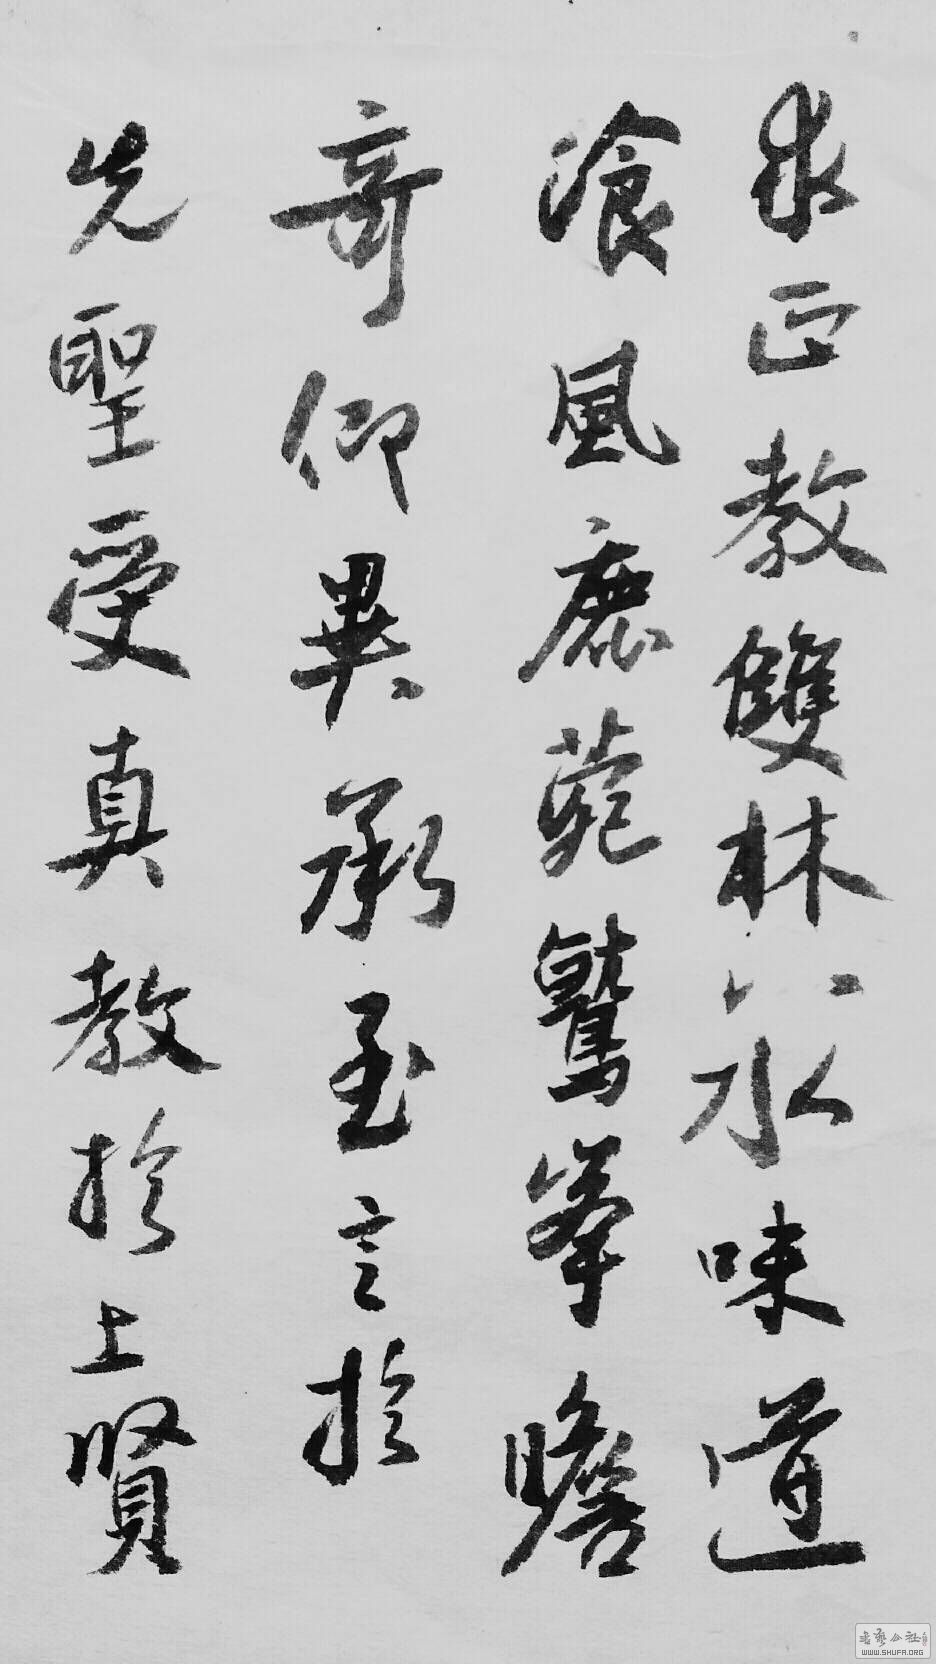 求正教雙林八水味道
飡風鹿菀鷲峯瞻
奇仰異承至言於
先聖受真教於上賢
WWW.SHUFA.ORG